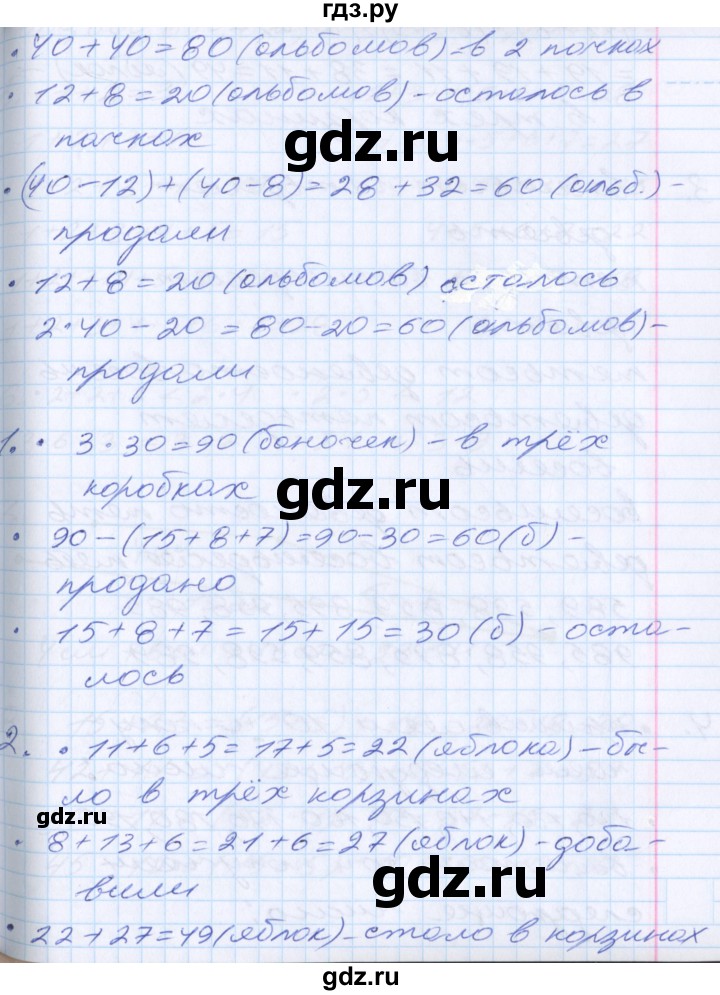 гдз.ру
• 40 + 40 = 80 (альбомов) – в 2 пачках
• 12 + 8 = 20 (альбомов) – осталось в
пачках
gdz.ru
• (40 – 12) + (40 – 8) = 28 + 32 = 60 (альб.) –
продали
• 12 + 8 = 20 (альбомов) осталось
2 · 40 – 20 = 80 – 20 = 60 (альбомов) –
продали
1. • 3 · 30 = 90 (баночек) – в трёх
коробках
gdz.ru
• 90 – (15 + 8 + 7) = 90 – 30 = 60 (б) –
продано
• 15 + 8 + 7 = 15 + 15 = 30 (б) – оста-
лось
gdz.ru
2. • 11 + 6 + 5 = 17 + 5 = 22 (яблока) – бы-
ло в трёх корзинах
gdz.ru
• 8 + 13 + 6 = 21 + 6 = 27 (яблок) – доба-
вили
gdz.ru
• 22 + 27 = 49 (яблок) – стало в корзинах
gdz.ru